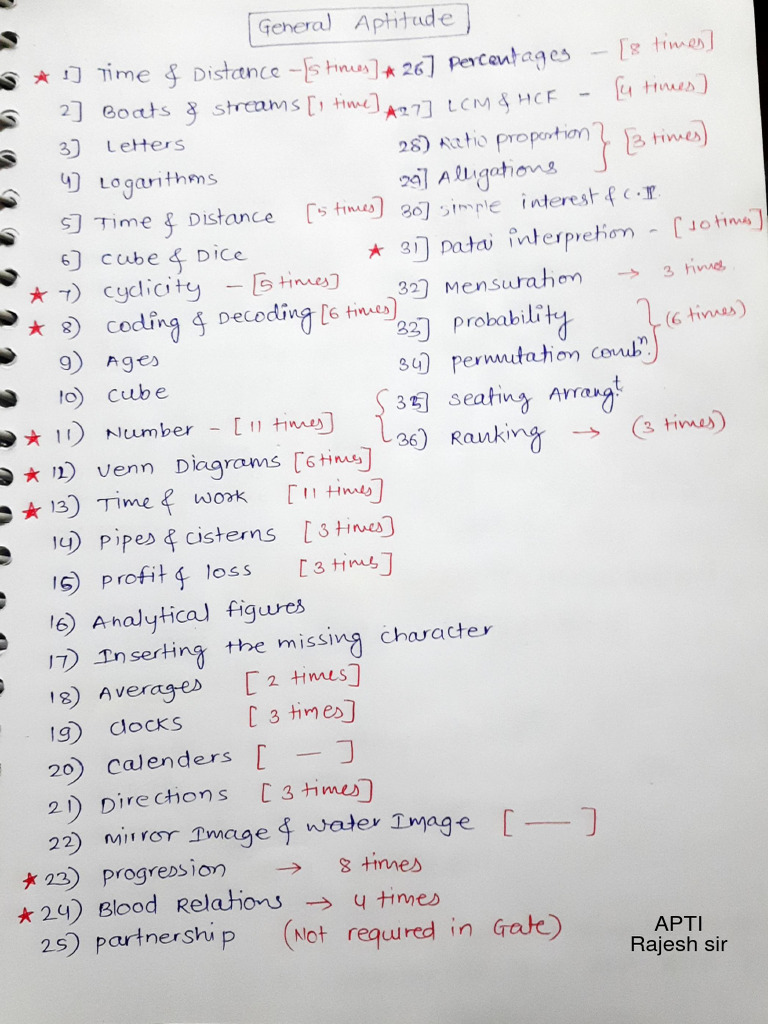 General Aptitude
★ 1] Time & Distance - [5 times]
2] Boats & streams [1 time]
3] Letters
4] Logarithms
5] Time & Distance [5 times]
6] Cube & Dice
★ 7) Cyclicity - [5 times]
★ 8) Coding & Decoding [6 times]
9) Ages
10) Cube
★ 11) Number - [11 times]
★ 12) Venn Diagrams [6 times]
★ 13) Time & Work [11 times]
14) Pipes & cisterns [3 times]
15) profit & loss [3 times]
16) Analytical figures
17) Inserting the missing character
18) Averages [2 times]
19) Clocks [3 times]
20) Calenders [ — ]
21) Directions [3 times]
22) Mirror Image & Water Image [ — ]
★ 23) progression → 8 times
★ 24) Blood Relations → 4 times
25) partnership (Not required in Gate)
★ 26] Percentages - [8 times]
★ 27] LCM & HCF - [4 times]
28) Ratio proportion
29] Alligations
[3 times]
30] Simple interest & C.I.
★ 31] Datai interpretion - [10 times]
32] Mensuration → 3 times
33] probability
34] permutation combⁿ.
(6 times)
35] Seating Arrangᵗ.
36) Ranking → (3 times)
APTI
Rajesh sir